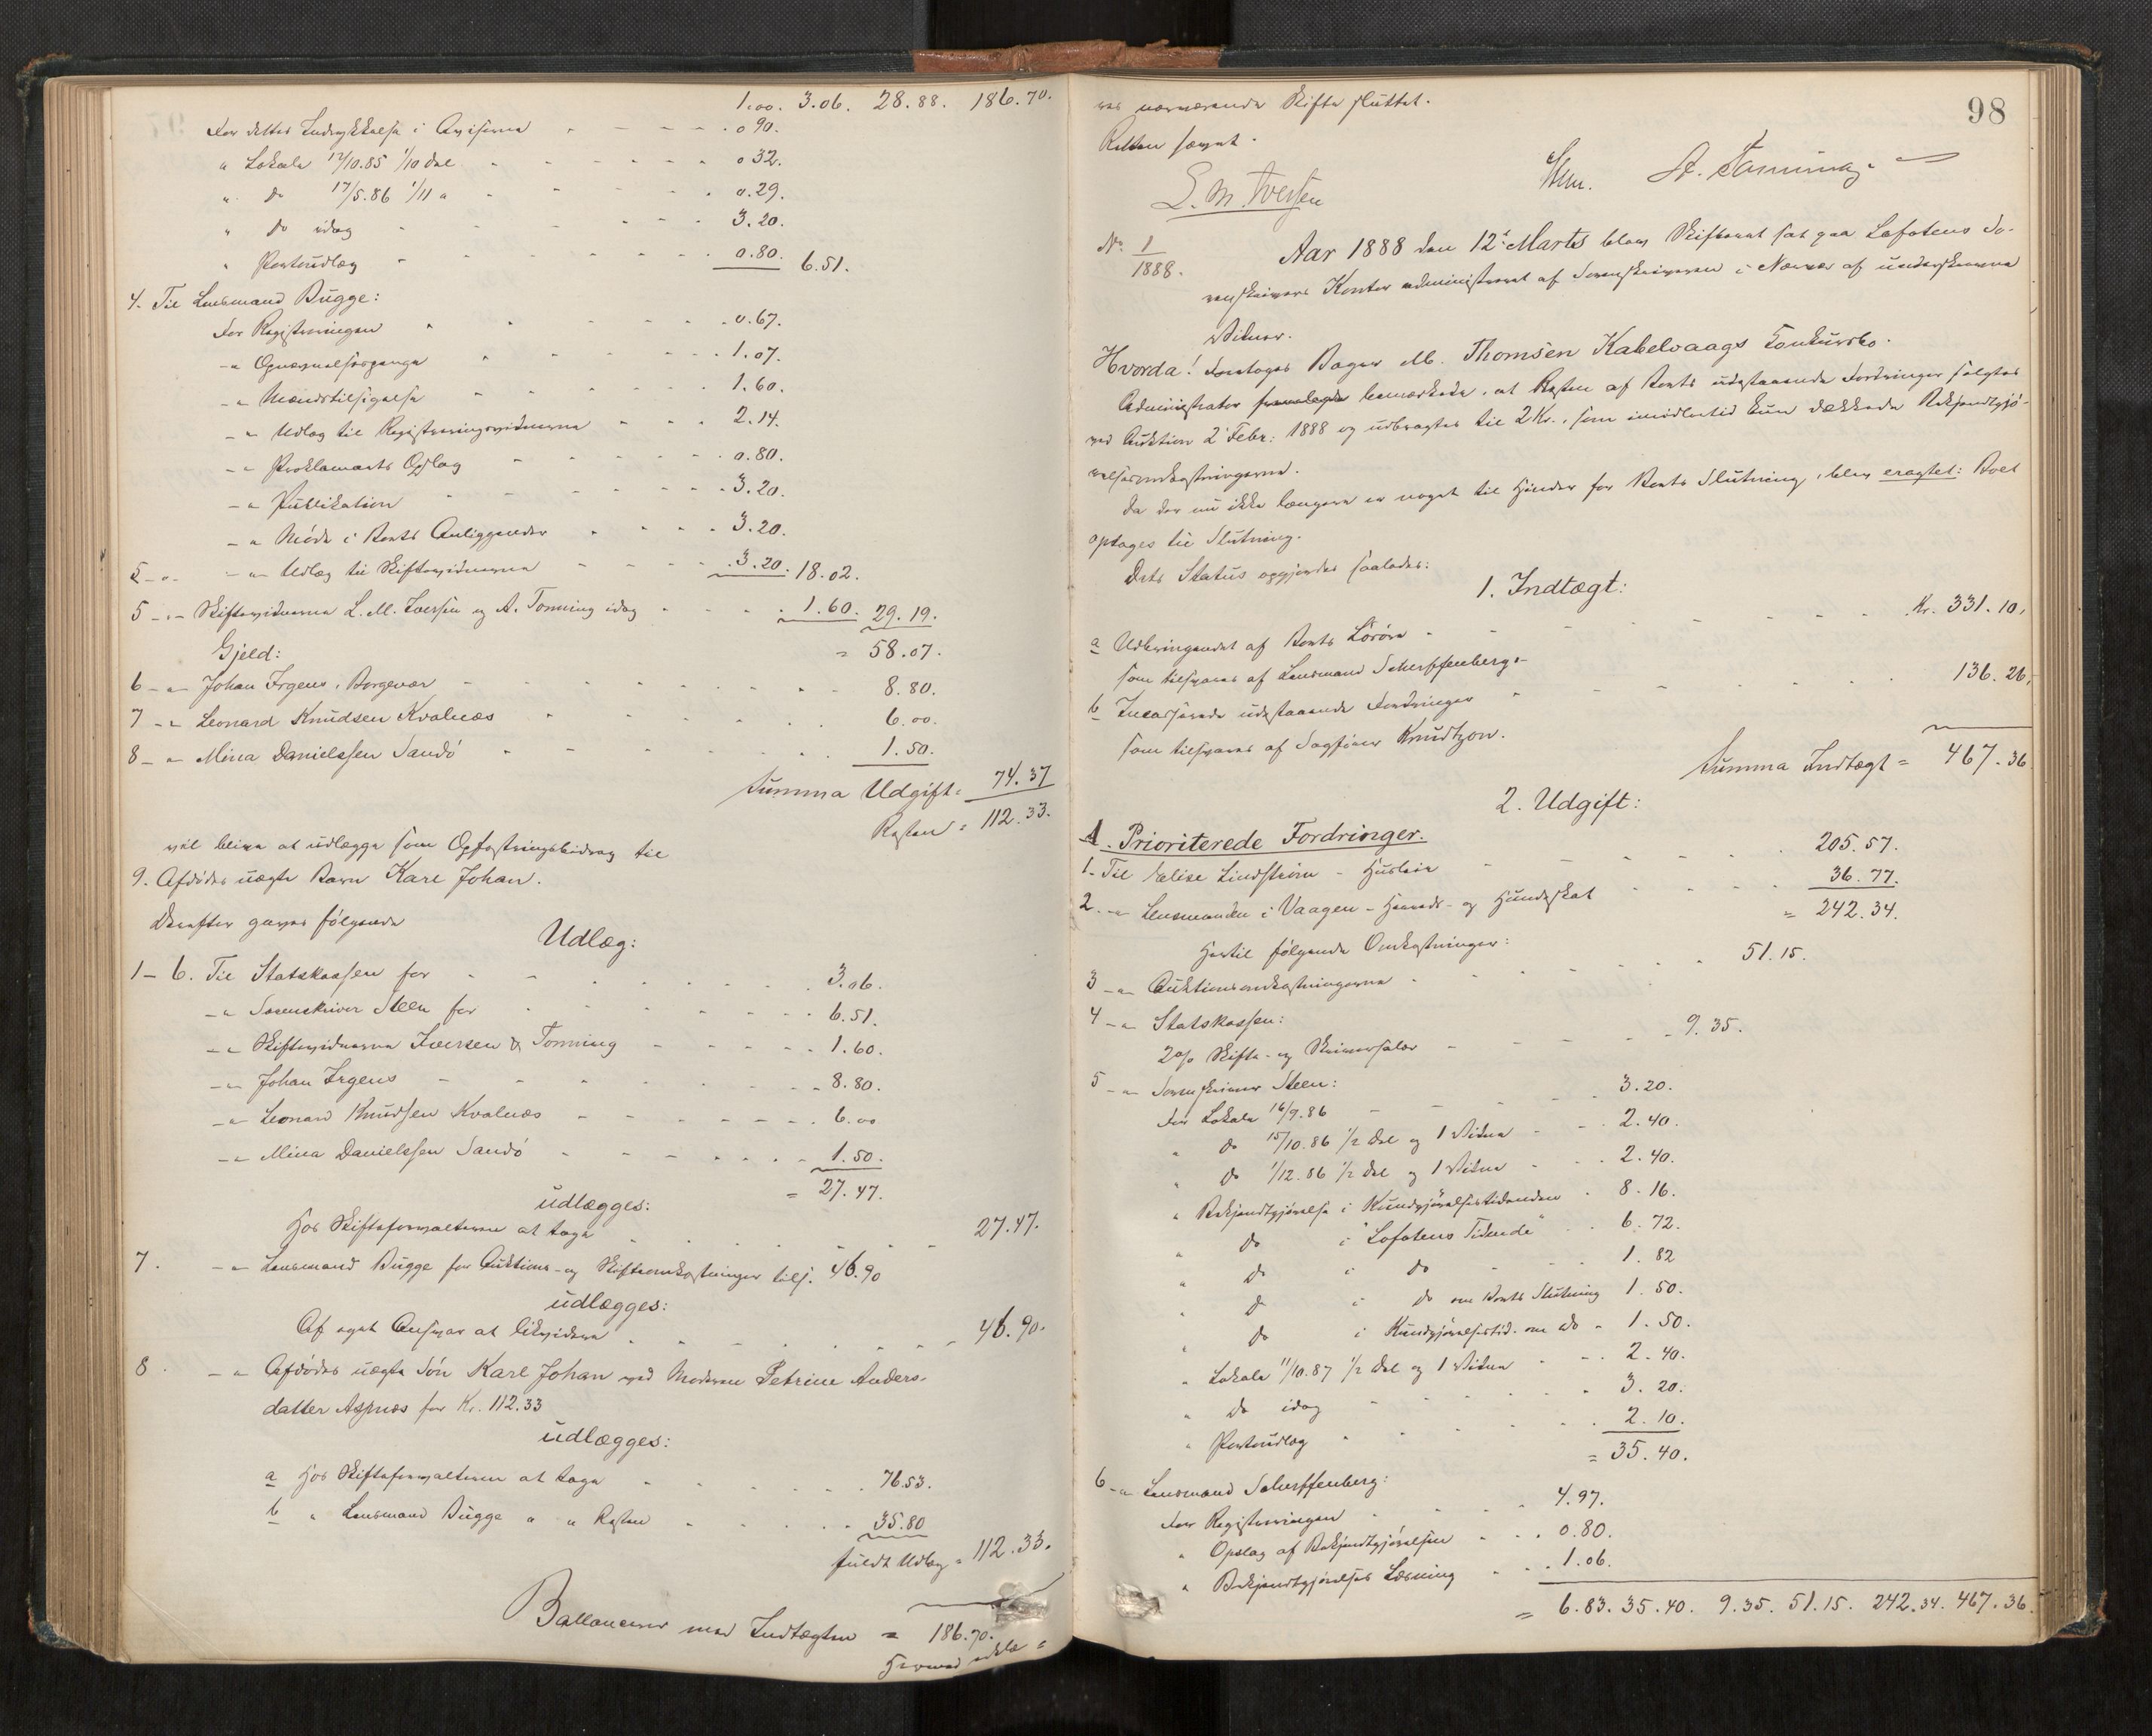 1.00. 3.06. 28.88. 186.70.
For dettes Indrykkelse i Aviserne - - - - 0 90.
" Lokale 12/10.85 1/10 Del - - - - - 0 32.
" Do 17/5.86 1/11 " - - - - - 0.29.
" Do idag - - - - - 3.20.
" Portoudlæg - - - - - 0.80. 6.51.
4. Til Lensmand Bugge:
For Registreringen - - - - - 0.67.
-"- - - - - - 1.07.
-"- Mændstilsigelse - - - - 1.60.
-"- Udlæg til Registreringsvidnerne - - - 2.14.
-"- Proklamaets Opslag - - - - 0.80.
-"- Publikation - - - - - 3.20.
-"- Møde i Boets Anliggender - - - - 3.20.
5 -"- -"- Udlæg til Skiftevidnerne - - - 3.20. 18.02.
5 -"- Skiftevidnerne L. M. Iversen og A. Tonning idag - - - 1.60. 29.19.
Gjeld: = 58.07.
6 -"- Johan Irgens, Borgevær - - - - - 8.80.
7 -"- Leonard Knudsen Kvalnæs - - - - 6.00.
8 -"- Mina Danielssen Sandö - - - - 1.50.
Summa Udgift = 74.37
Resten = 112.33.
vil blive at udlægge som Opfostringsbidrag til
9. Afdødes uægte Barn Karl Johan.
Derefter gaves følgende
Udlæg:
1 - 6. Til Statskassen for - - - - - 3.06.
-"- Sorenskriver Steen for - - - - 6.51.
-"- Skiftevidnerne Iversen & Tonning - - - - 1.60.
-"- Johan Irgens - - - - - 8.80.
-"- Leonard Knudsen Kvalnæs - - - - 6.00
-"- Mina Danielssen Sandö - - - - 1.50.
= 27.47.
udlægges:
Hos Skifteforvalteren at tage - - - - - 27.47.
7. -"- Lensmand Bugge for Auktions- og Skifteomkostninger tils. 46.90
udlægges:
Af eget Ansvar at likvidere - - - - - 46.90.
8. -"- Afdødes uægte Sön Karl Johan ved Moderen Petrine Anders-
datter Aspnæs for Kr. 112.33
udlægges:
a Hos Skifteforvalteren at tage - - - - 76.53.
b " Lensmand Bugge " " Resten - - - - 35.80
fuldt Udlæg = 112.33.
Ballancerer med Indtægten = 186.70.
Hermed erklæ=
98
res nærværende Skifte sluttet.
Retten hævet.
L. M. Iversen
A. Tonning
No. 1/1888.
Aar 1888 den 12te Marts blev Skifteret sat paa Lofotens So-
renskrivers Kontor administreret af Sorenskriveren i Nærvær af underskrevne
Vidner.
Hvorda! Foretoges Bager M. Thomsen Kabelvaags Konkursbo.
Administrator fremlagde bemærkede, at Resten af Boets udestaaende Fordringer solgtes
ved Auktion 2 Febr: 1888 og udbragtes til 2 Kr., som imidlertid kun dækkede Bekjendtgjö-
relsesomkostningerne.
Da der nu ikke længere er noget til Hinder for Boets Slutning, blev eragtet: Boet
optages til Slutning.
Dets Status opgjordes saaledes:
1. Indtægt:
a Udbringendet af Boets Lösöre - - - - - Kr. 331.10.
som tilsvares af Lensmand Scherffenberg.-
b Incasserede udestaaende Fordringer - - - - - 136.26.
som tilsvares af Sagfører Knudtzon.
Summa Indtægt = 467.36
2. Udgift:
A. Prioriterede Fordringer.
1. Til Elise Lindström - Husleie - - - - - 205.57.
2. -"- Lensmanden i Vaagen - Herreds- og Hundeskat - - - 36.77.
= 242.34.
Hertil følgende Omkostninger:
3 -"- Auktionsomkostningerne - - - - - 51.15.
4 -"- Statskassen:
2% Skifte- og Skriversalær - - - - 9.35.
5 -"- Sorenskriver Steen:
For Lokale 16/9.86 - - - - 3.20.
" Do 15/10.86 1/2 Del og 1 Vidne - - - 2.40.
" Do 1/12.86 1/2 Del og 1 Vidne - - - 2.40.
" Bekjendtgjørelse i Kundgjørelsestidenden - 8.16.
" Do i "Lofotens Tidende" - - 6.72.
" Do i Do - - 1.82
" Do i Do om Boets Slutning 1.50.
" Do i Kundgjørelsestid. om Do - 1.50.
" Lokale 11/10.87 1/2 Del og 1 Vidne - - 2.40.
" Do idag - - - - 3.20.
" Portoudlæg - - - - 2.10.
= 35.40.
6 -"- Lensmand Scherffenberg:
For Registreringen - - - 4.97.
" Opslag af Bekjendtgjörelsen - - - 0.80.
" Bekjendtgjörelses Læsning - - - 1.06.
= 6.83. 35.40. 9.35. 51.15. 242.34. 467.36.